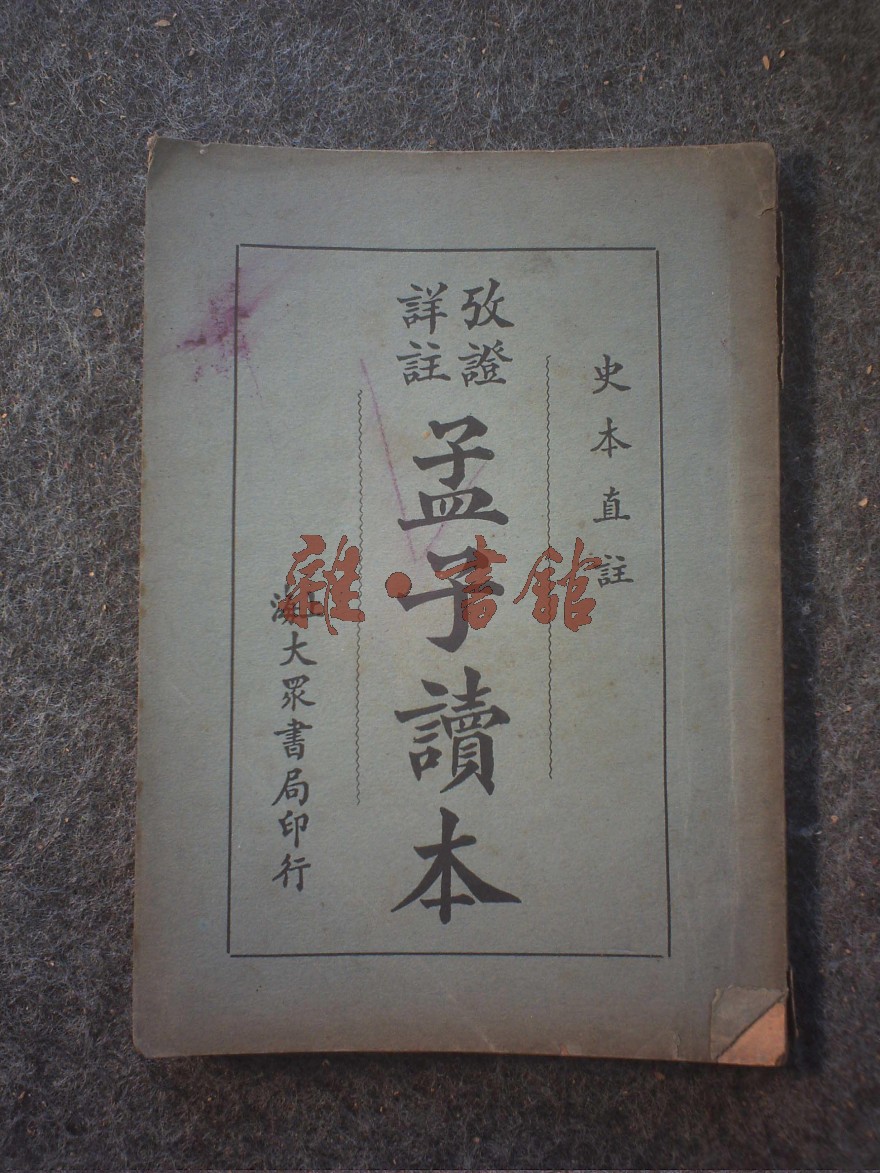 史本直註
攷證
詳註
孟子讀本
上海大眾書局印行
雜·書館